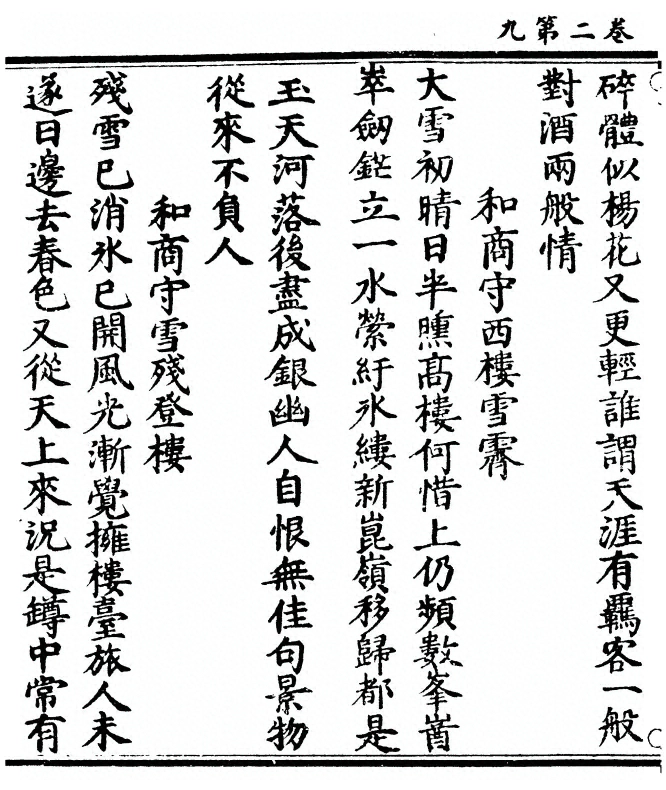 九第二卷
碎體似楊花又更輕誰謂天涯有羈客一般
對酒兩般情
和商守西樓雪霽
大雪初晴日半曛高樓何惜上仍頻數峯崷
崒劒鋩立一水縈紆氷縷新崑嶺移歸都是
玉天河落後盡成銀幽人自恨無佳句景物
從來不負人
和商守雪殘登樓
殘雪已消氷已開風光漸覺擁樓臺旅人未
遂日邊去春色又從天上來況是罇中常有